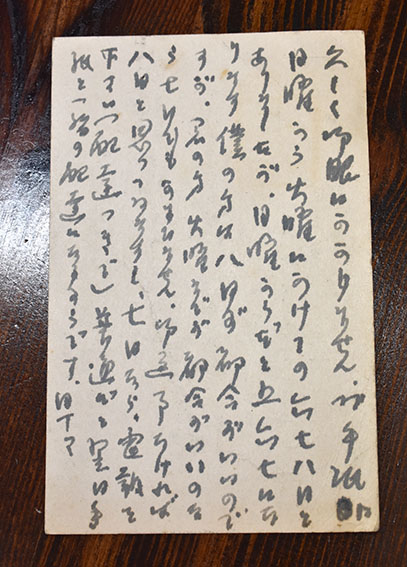 久しく御眼にかかりません。御手紙に
日曜から火曜にかけての六七八日と
ありましたが、日曜からだと五六七にな
ります 僕の方は八日が都合がいいので
すが、君の方火曜までが都合がいいのな
ら七日でもかまひません。御返事なければ
八日と思つてゐますし、七日なら、電報を
下さい(配達つきで)普通だと翌日手
紙と一緒の配達になるさうです。